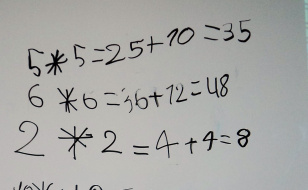 5*5=25+10=35
6*6=36+12=48
2*2=4+4=8